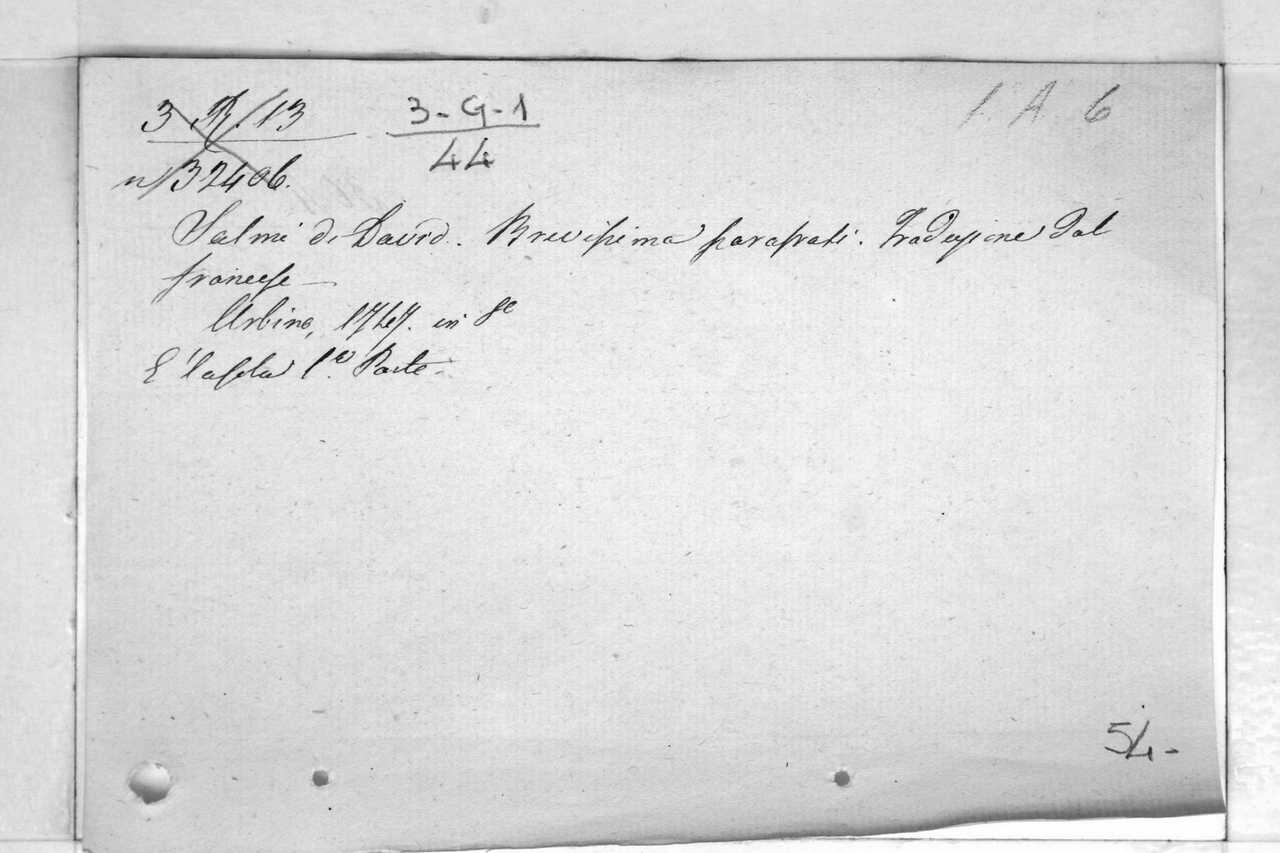 3 R/13
3-G-1
44
1. A 6
n/32406.
Salmi di David. Brevissima parafrasi. Traduzione dal
francese —
Urbino, 1747. in 8º
È la sola 1ª Parte.
54-